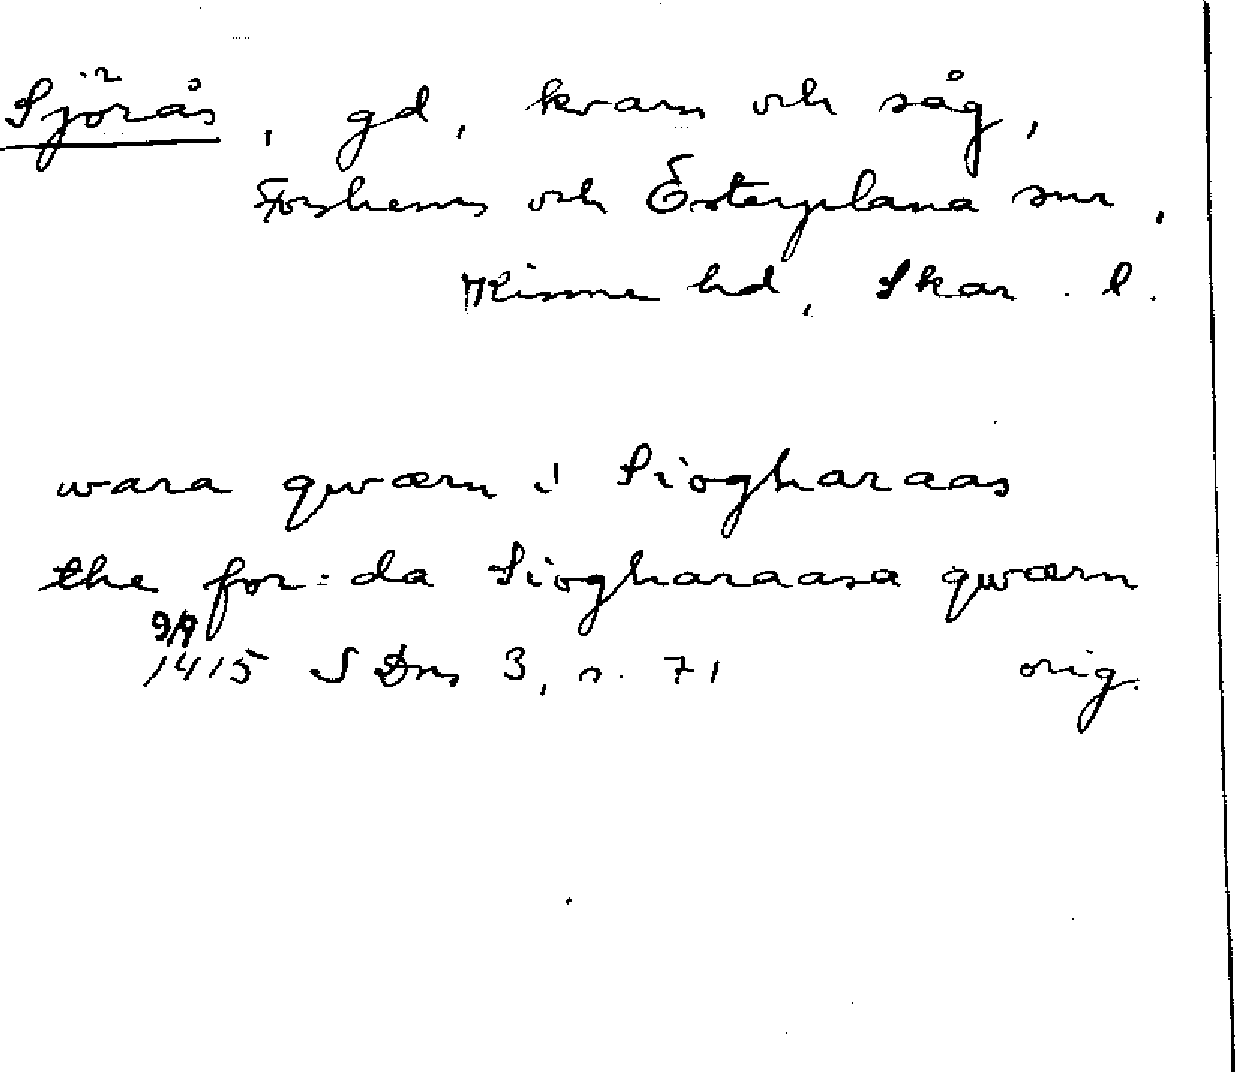 Sjörås, gd, kvarn och såg,
Forshems och Österplana snr,
Kinne hd, Skar. l.
wara qwærn i Siogharaas
the for:da Siogharaasa qwærn
9/9
1415 SDns 3, s. 71 orig.